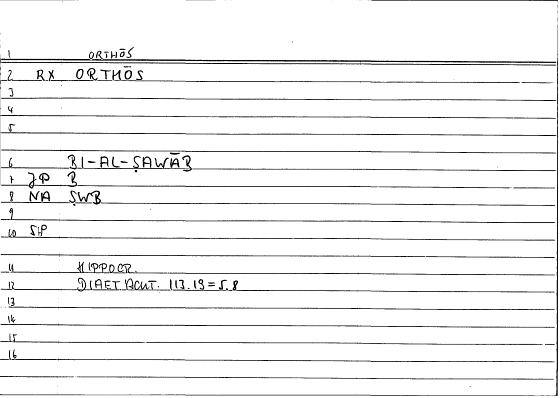 1 ORTHŌS
2 RX ORTHŌS
3
4
5
6 BI-AL-ṢAWĀB
7 JP B
8 NA ṢWB
9
10 SP
11 HIPPOCR.
12 DIAET. ACUT. 113.19 = 5.8
13
14
15
16